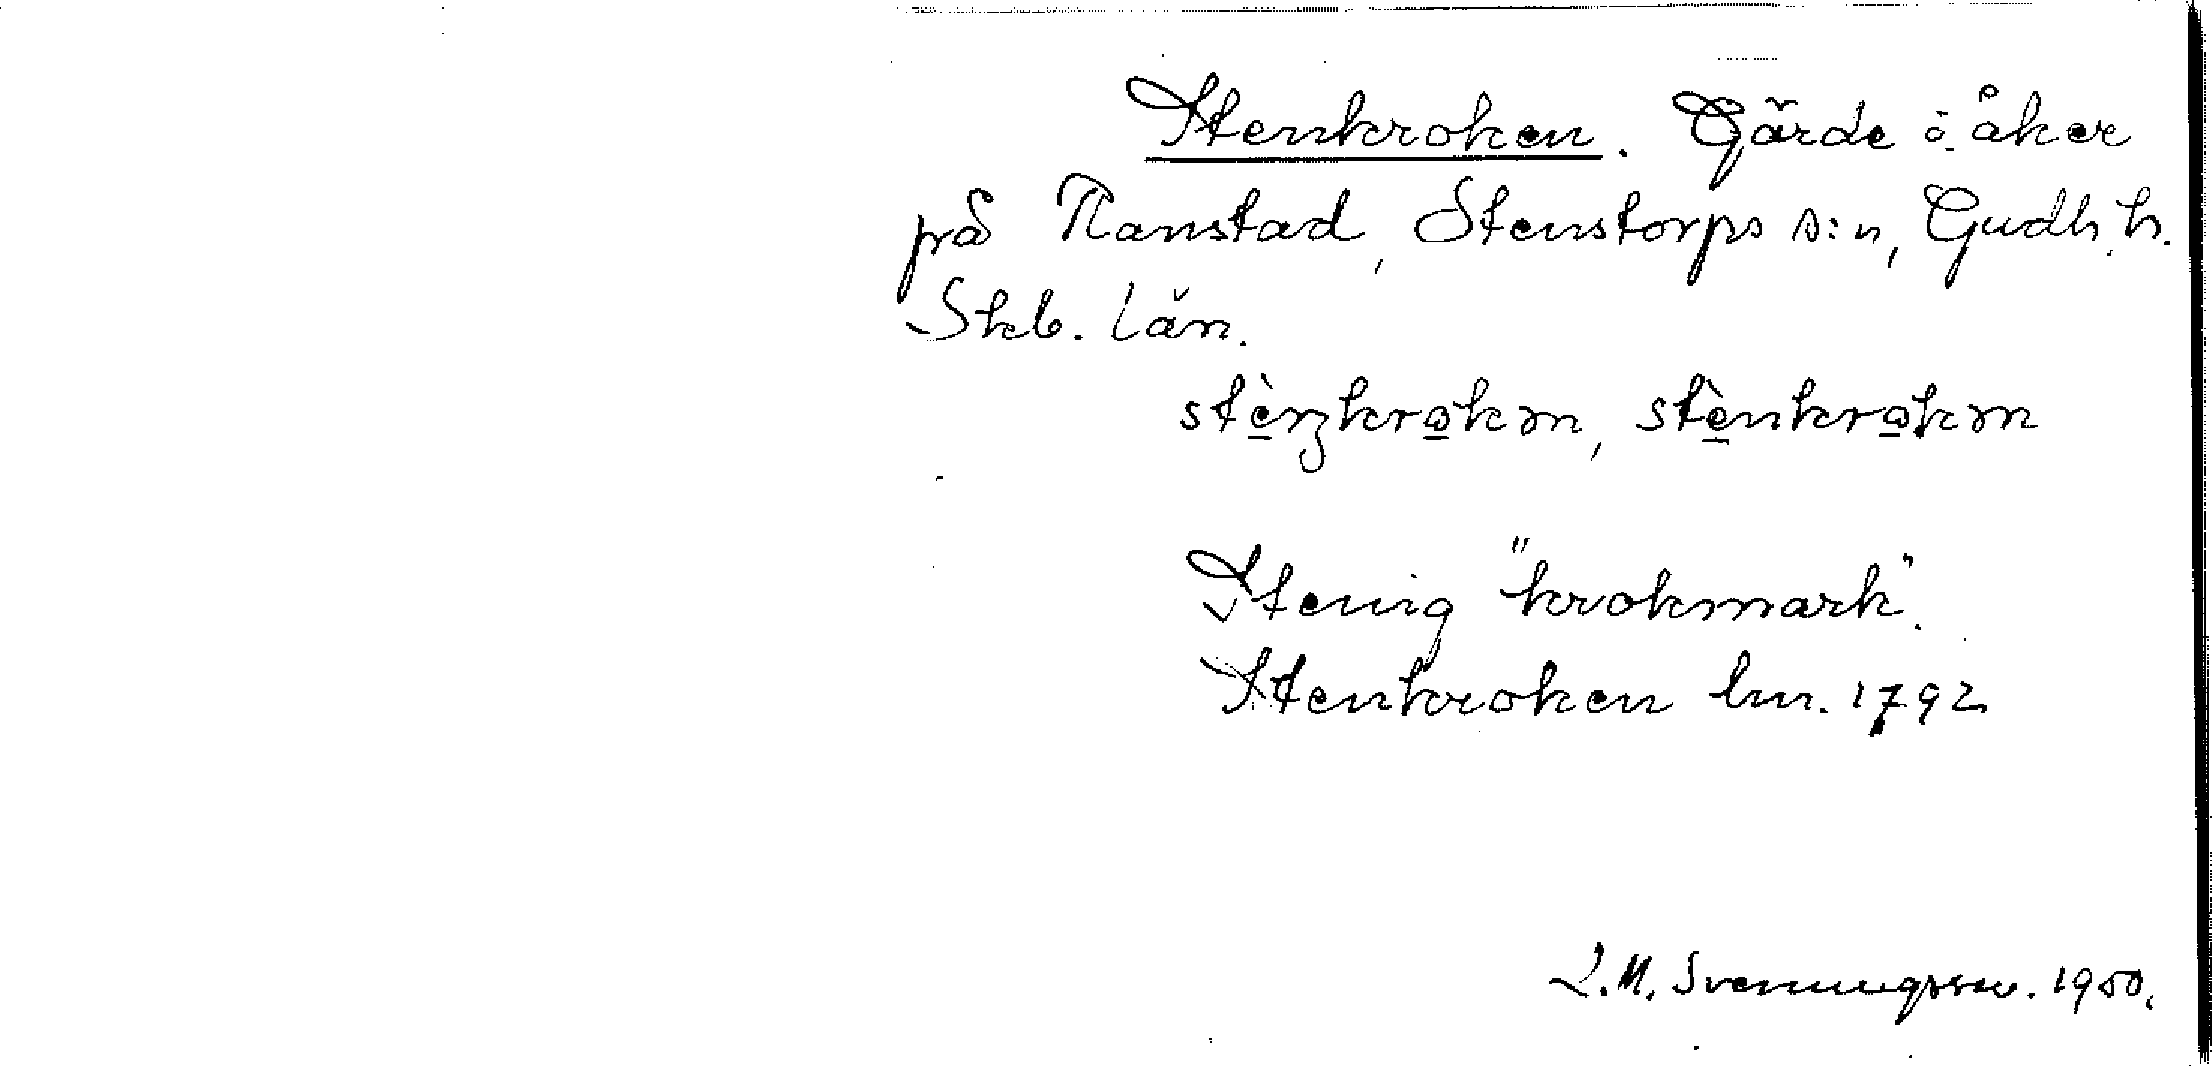 Stenkroken. Gärde o. åker
på Ranstad, Stenstorps s:n, Gudh. h.
Skb. län.
stèŋkrokən, stènkrokən
Stenig "krokmark".
Stenkroken lm. 1792
L.M. Svenungsson. 1950.